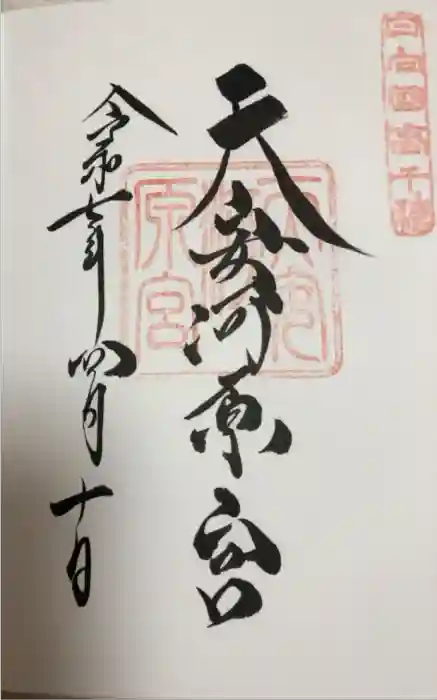 日向國高千穂
天安河原宮
天安河原宮
令和七年四月十日